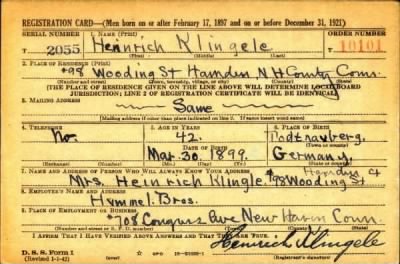 REGISTRATION CARD—(Men born on or after February 17, 1897 and on or before December 31, 1921)
SERIAL NUMBER 1. NAME (Print) ORDER NUMBER
T 2055 Heinrich Klingele 10101
(First) (Middle) (Last)
2. PLACE OF RESIDENCE (Print)
#98 Wooding St Hamden N H County Conn.
(Number and street) (Town, township, village, or city) (County) (State)
[THE PLACE OF RESIDENCE GIVEN ON THE LINE ABOVE WILL DETERMINE LOCAL BOARD
JURISDICTION; LINE 2 OF REGISTRATION CERTIFICATE WILL BE IDENTICAL]
3. MAILING ADDRESS
Same
[Mailing address if other than place indicated on line 2. If same insert word same]
4. TELEPHONE 5. AGE IN YEARS 6. PLACE OF BIRTH
No. 42.
DATE OF BIRTH (Town or county)
Mar. 30 1899 Germany
(Exchange) (Number) (Mo.) (Day) (Yr.) (State or country)
7. NAME AND ADDRESS OF PERSON WHO WILL ALWAYS KNOW YOUR ADDRESS
Mrs. Heinrich Klingle #98 Wooding St Hamden
8. EMPLOYER'S NAME AND ADDRESS
Hummel Bros.
9. PLACE OF EMPLOYMENT OR BUSINESS
#708 Congress Ave New Haven Conn.
(Number and street or R. F. D. number) (Town) (County) (State)
I AFFIRM THAT I HAVE VERIFIED ABOVE ANSWERS AND THAT THEY ARE TRUE.
D. S. S. Form 1
(Revised 1-1-42) GPO Heinrich Klingele
(Registrant's signature)